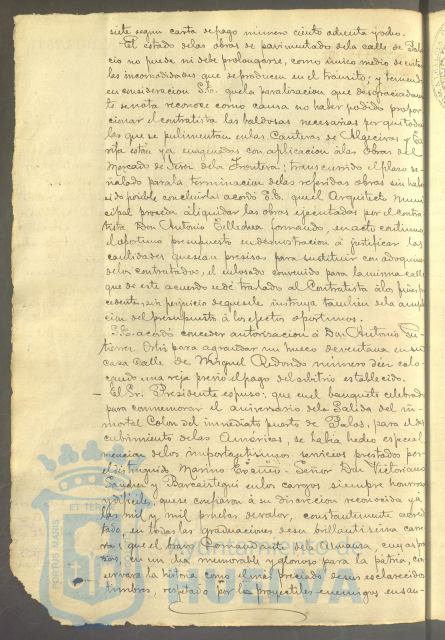 siete segun carta de pago numero ciento ochenta y ocho.
El estado de las obras de pavimentado de la calle de Pala-
cio no puede ni debe prolongarse, como único medio de evitar
las incomodidades que se producen en el tránsito; y teniendo
en consideracion S.E. que la paralizacion que desgraciadamen
te se nota reconoce como causa no haber podido propor-
cionar el contratista las baldosas necesarias por que todas
las que se pulimentan en las Canteras de Algeciras y Ta
rifa están ya enagenadas con aplicacion á las obras del
Mercado de Jerez de la Frontera; transcurrido el plazo se-
ñalado para la terminacion de las referidas obras sin haber
sido posible concluirlas acordó S.E. que el Arquitecto muni
cipal proceda á liquidar las obras ejecutadas por el contra-
tista Don Antonio formando, en acto continuo,
el oportuno presupuesto en demostracion á justificar las
cantidades que sean precisas para sustituir con adoquines
de los contratados, el enlosado convenido para la misma calle
que de este acuerdo se dé traslado al Contratista á los fines
cedente, sin perjuicio de que se le instruya tambien de la
cion del presupuesto á los efectos oportunos.
S.E. acordó conceder autorizacion á Don Antonio Gu-
tierrez Ortiz para agrandar un hueco de ventana en su
casa Calle de Miguel Redondo número diez colo-
cando una reja previo el pago del arbitrio establecido.
El Sr. Presidente expuso: que en el banquete celebrado
para conmemorar el aniversario de la Salida del in-
mortal Colon del inmediato puerto de Palos, para el des
cubrimiento de las Américas, se había hecho especial
mencion de los importantisimos servicios prestados por
el distinguido Marino Excmo. Señor Don Victoriano
Sanchez y Barcaiztegui en los cargos siempre honrosos
y dificiles, que se confiaron á su discrecion reconocida ya
por mil y mil pruebas de valor, constantemente acredi
tado, en todas las graduaciones de su brillantisima carre
ra; que el bravo Comandante de la Numancia, cuyas proe
zas, en un dia memorable y glorioso para la pátria, con
servará la historia como el mas preciado de sus esclarecidos
timbres, respetado por los proyectiles enemigos en san-
PORTUS MARIS
ET TERRAE
Ayuntamiento de
HUELVA